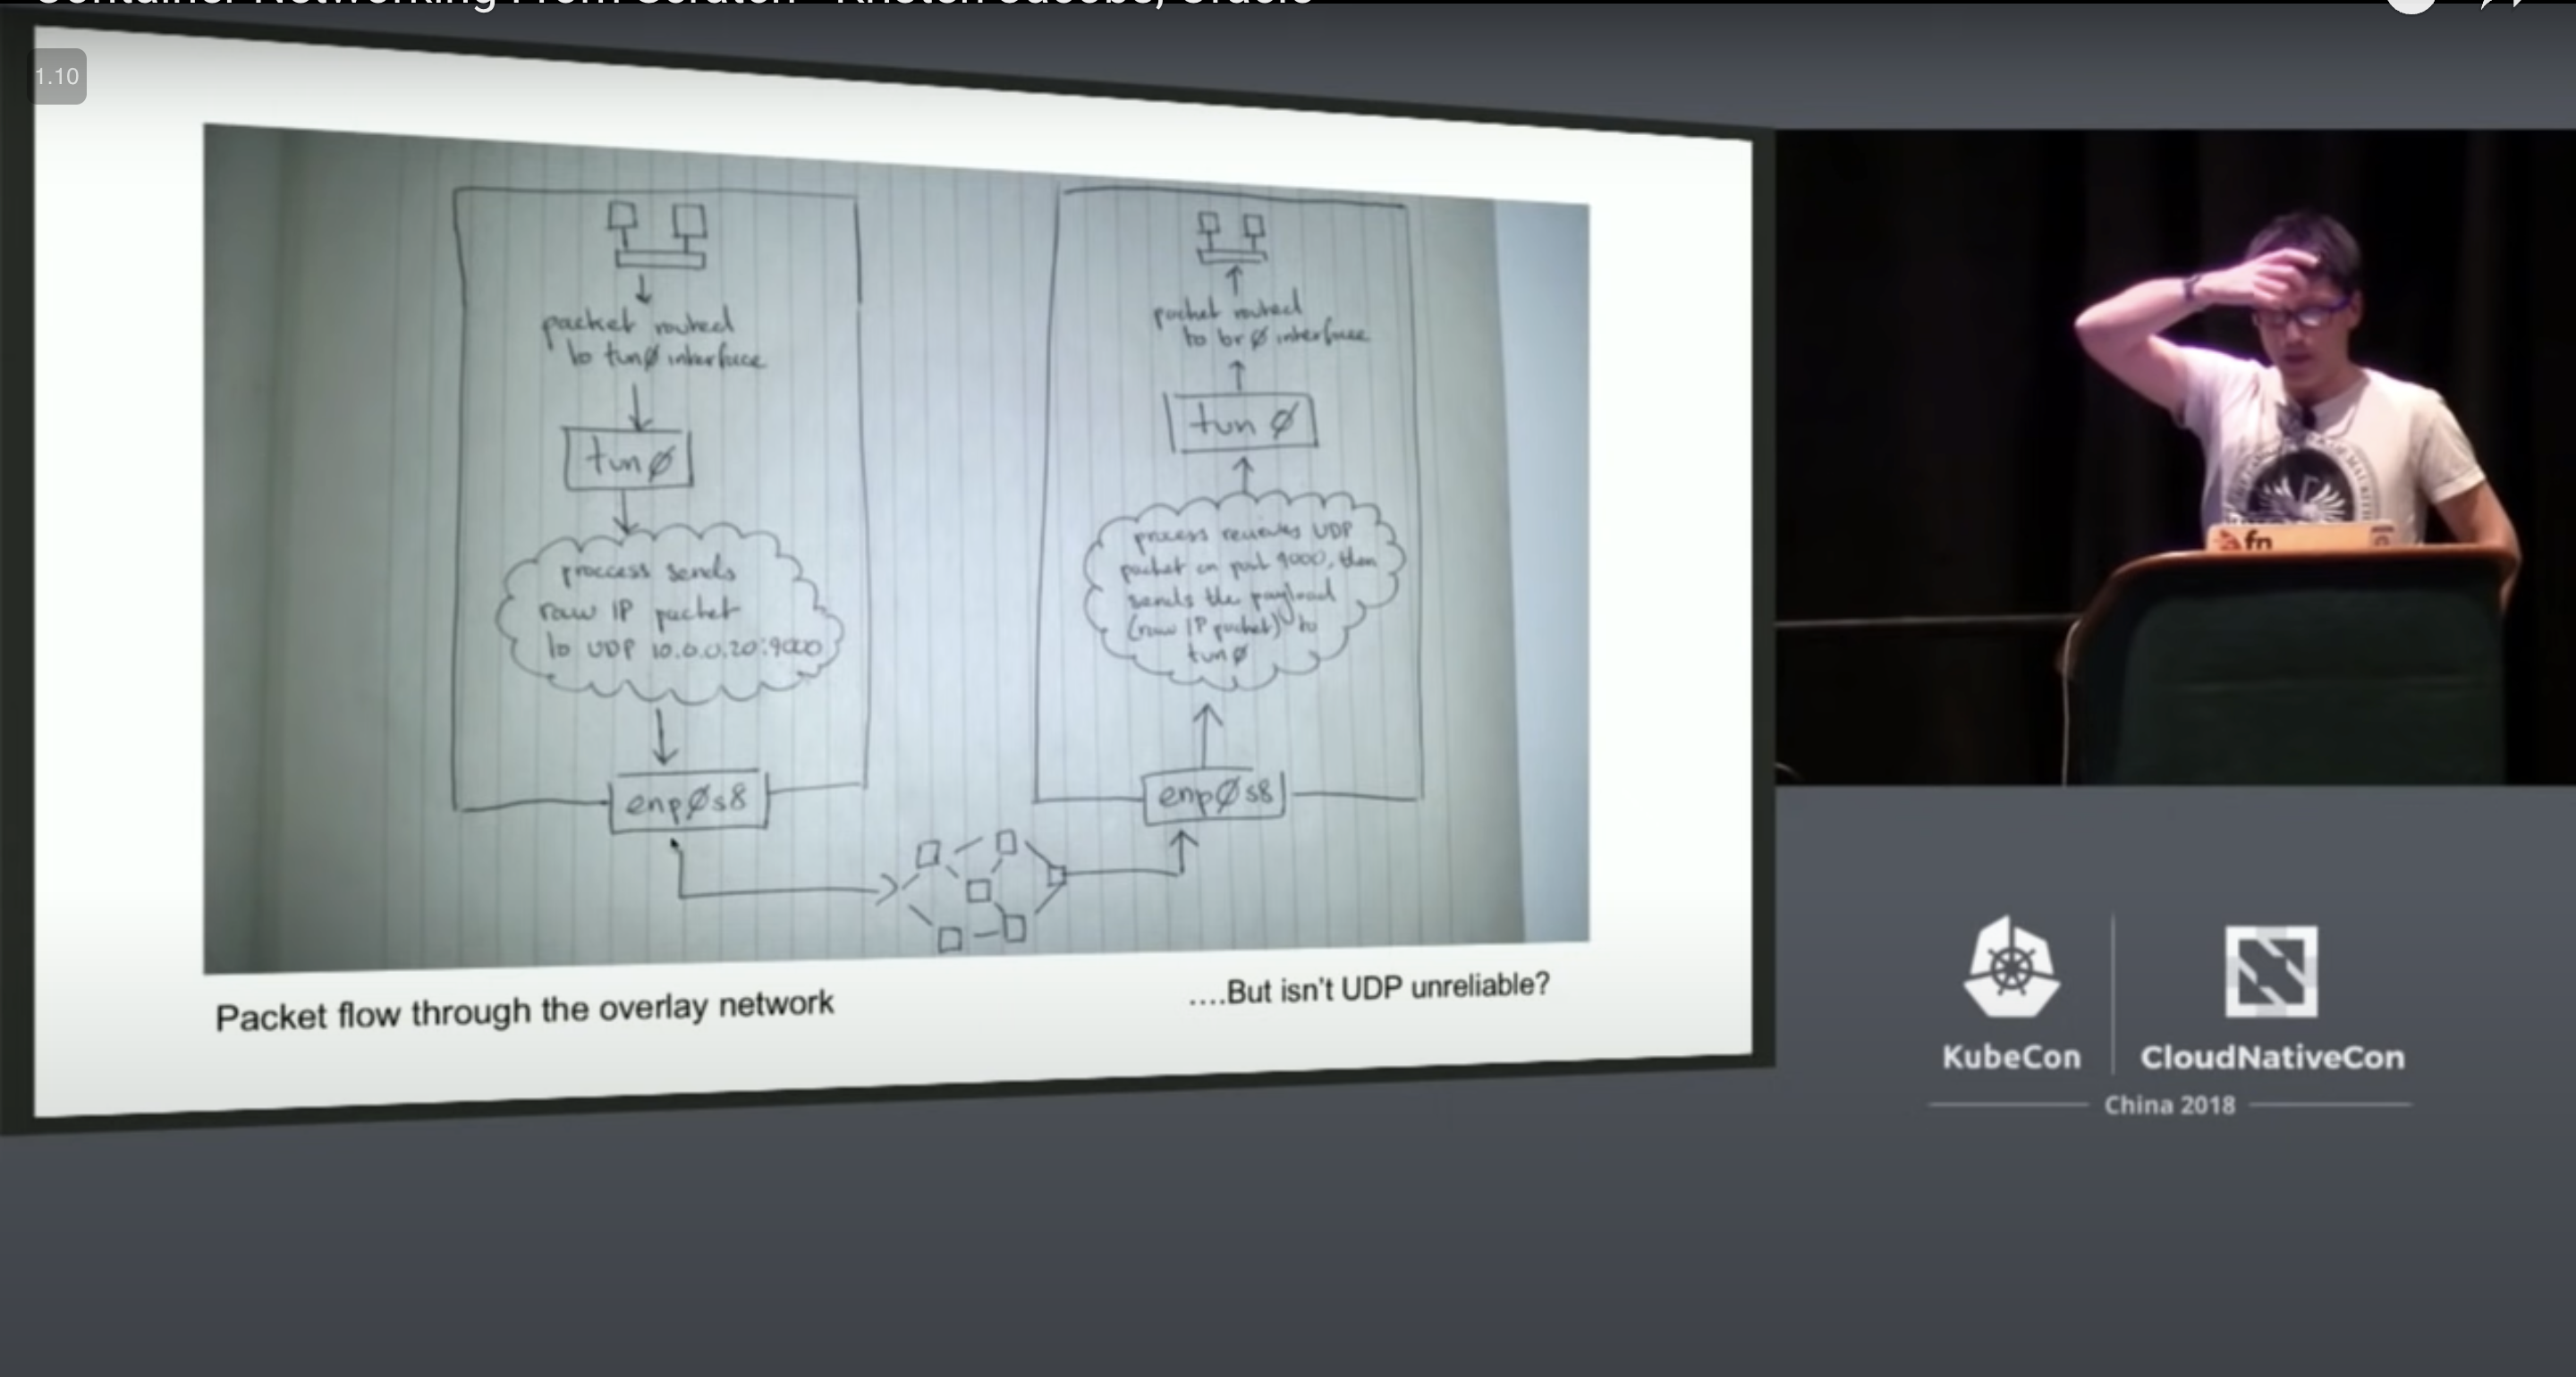 Container Networking From Scratch - Kristen Jacobs, Oracle
1.10
packet routed
to tun0 interface
tun0
proccess sends
raw IP packet
to UDP 10.0.0.20:9000
enp0s8
packet routed
to br0 interface
tun0
process recieves UDP
packet on port 9000, then
sends the payload
(raw IP packet) to
tun0
enp0s8
Packet flow through the overlay network
....But isn't UDP unreliable?
fn
KubeCon
CloudNativeCon
China 2018